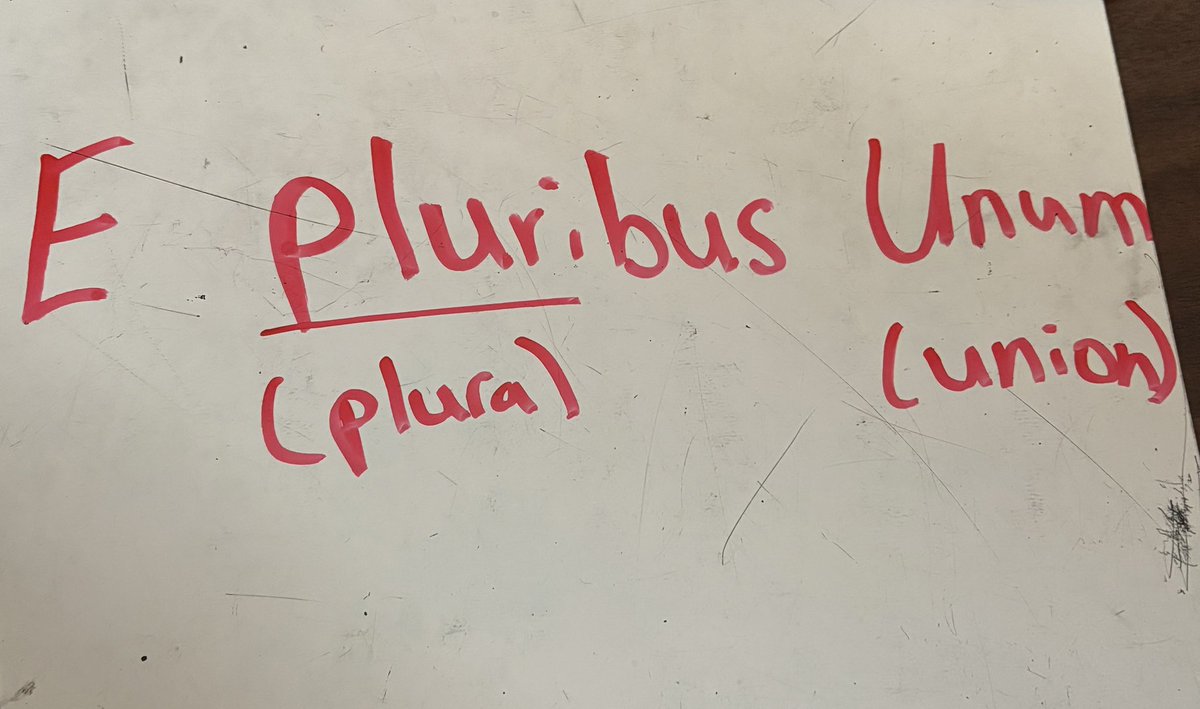 E pluribus Unum
(plura) (union)